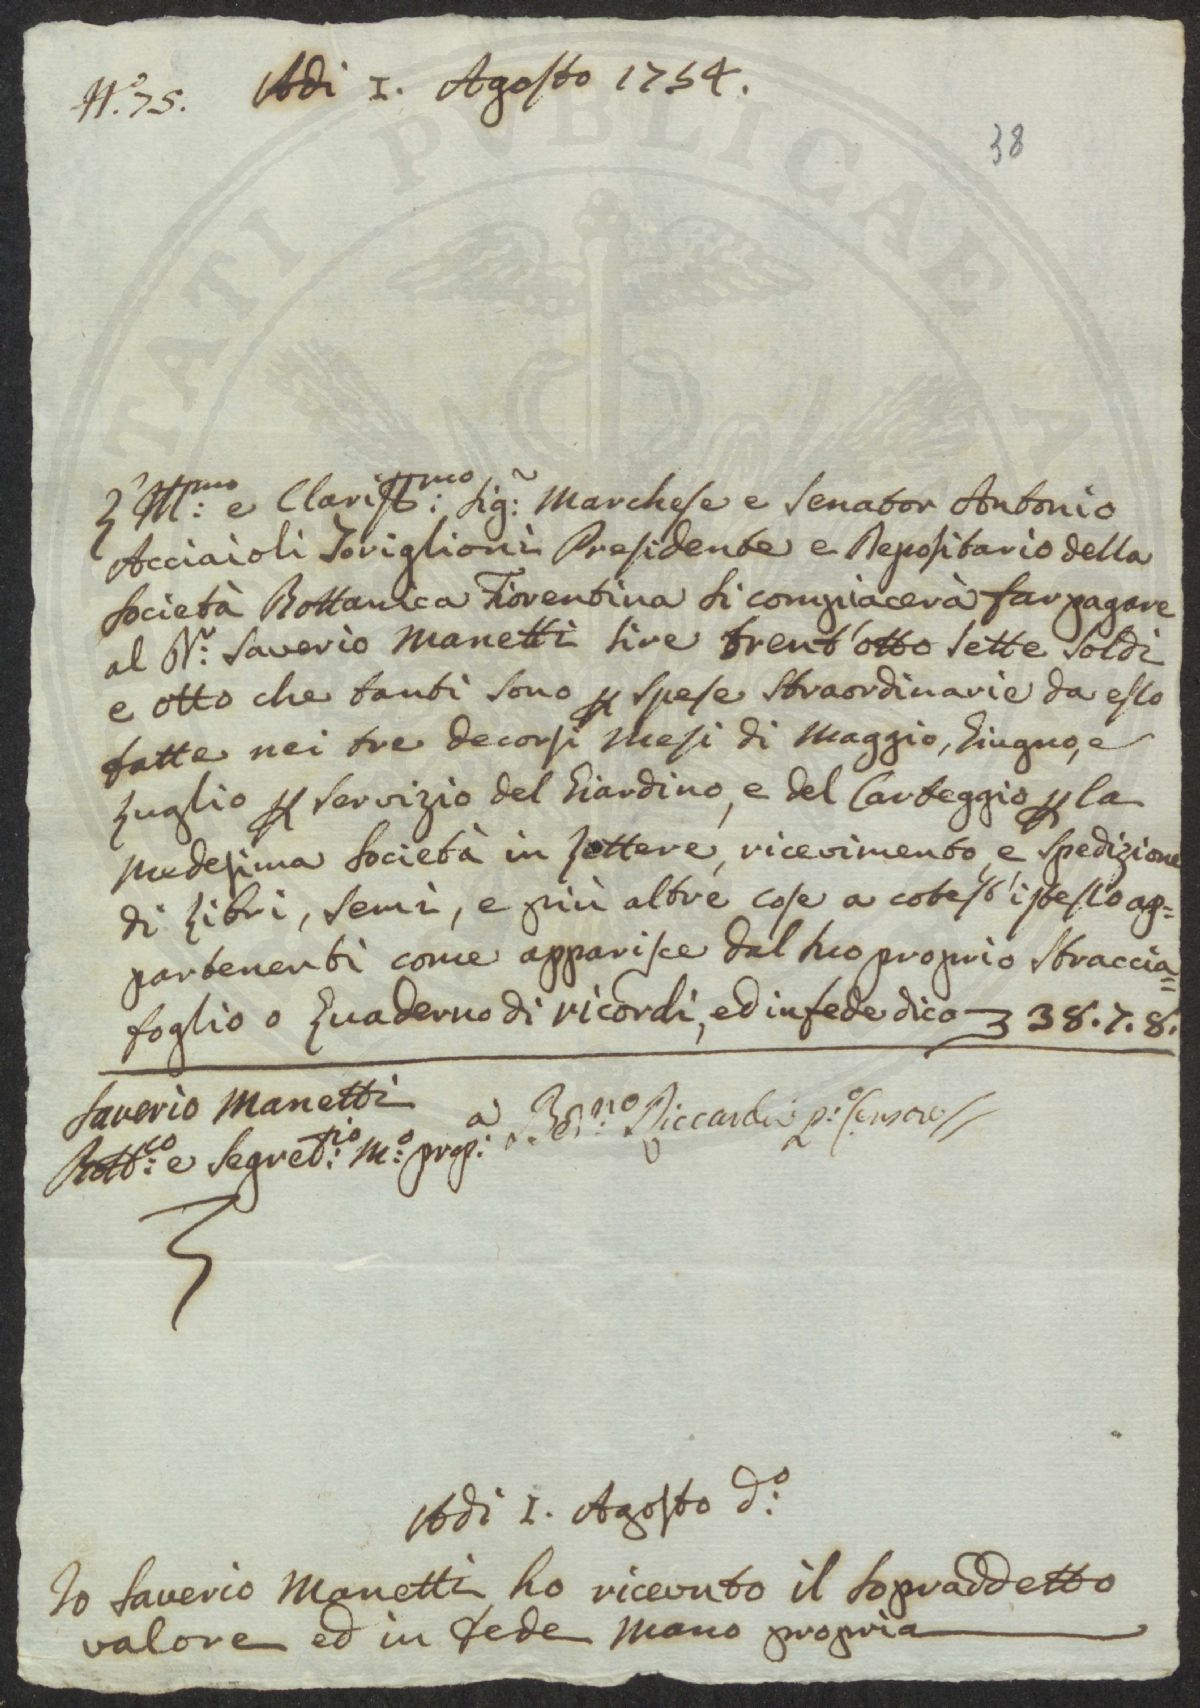 N.° 75. Adi I. Agosto 1754.
38
L'Ill.mo e Clariss.mo Sig.r Marchese e Senator Antonio
Acciaioli Toriglioni Presidente e Depositario della
Società Bottanica Fiorentina si compiacerà far pagare
al Dr. Saverio Manetti lire trent'otto sette soldi
e otto che tanti sono p spese straordinarie da esso
fatte nei tre decorsi mesi di Maggio, Giugno, e
Luglio p servizio del Giardino, e del Carteggio p la
medesima Società in lettere, ricevimento, e spedizione
di libri, semi, e più altre cose a cotest'istesso ap=
partenenti come apparisce dal suo proprio straccia=
foglio o Quaderno di ricordi, ed in fede dico 38.7.8.
Saverio Manetti
Bott.co e Segret.rio M.o prop.a Riccardi p.o Censore
Adi I. Agosto d.o
Io Saverio Manetti ho ricevuto il sopraddetto
valore ed in fede mano propria